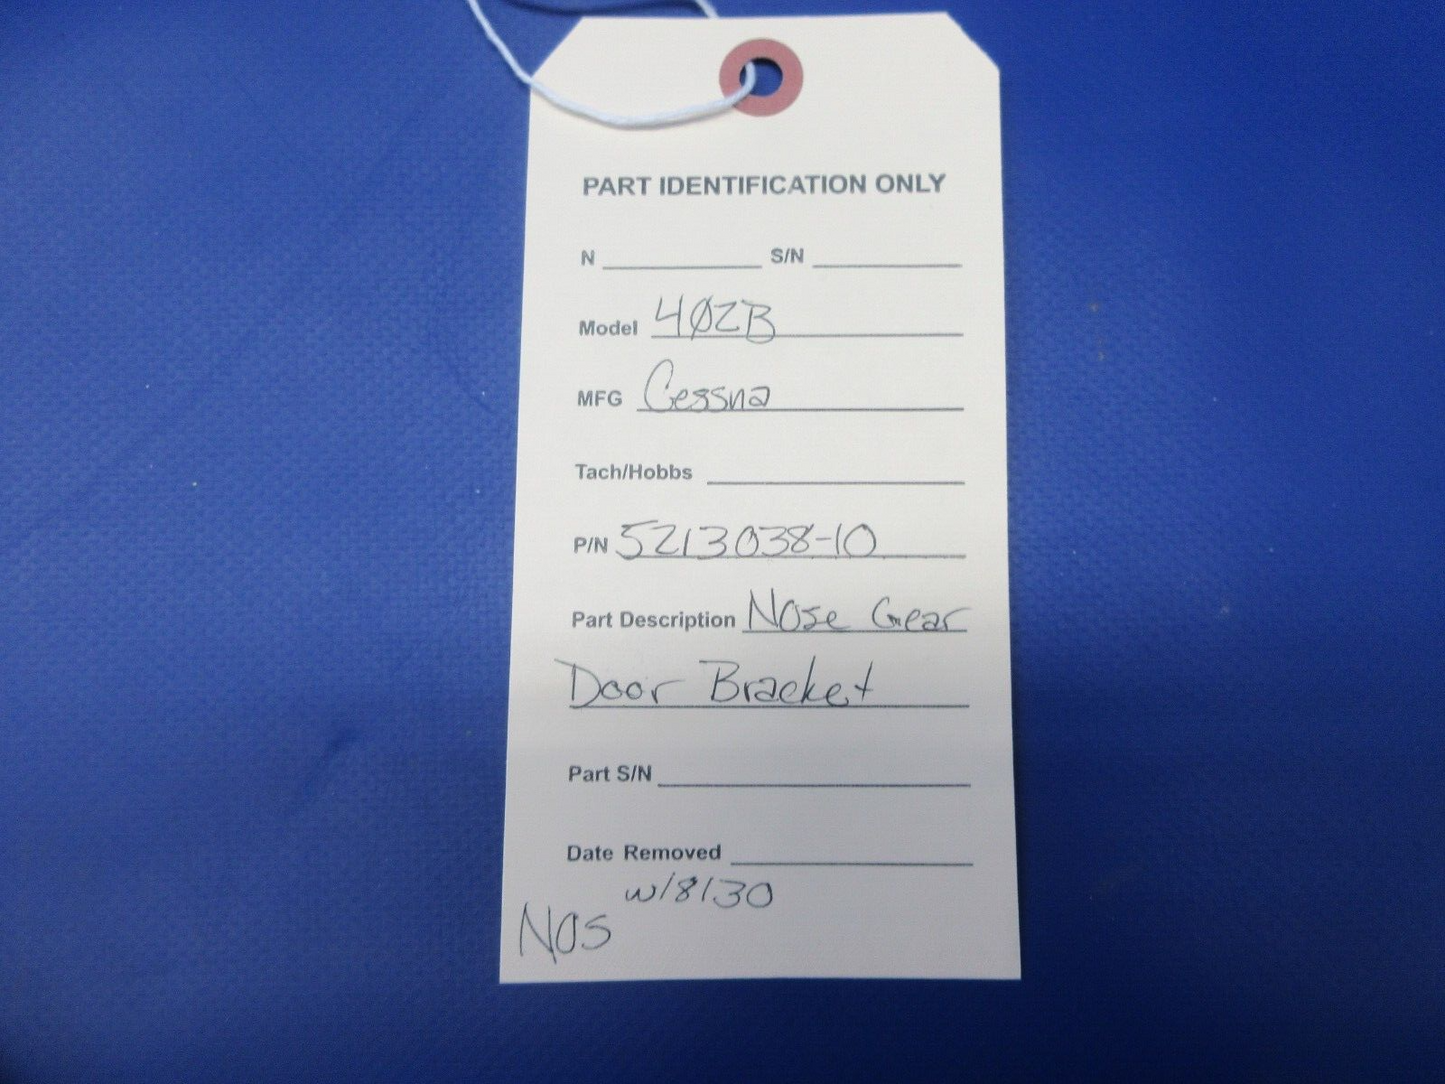 PART IDENTIFICATION ONLY
N S/N
Model 4Ø2B
MFG Cessna
Tach/Hobbs
P/N 5213038-10
Part Description Nose Gear
Door Bracket
Part S/N
Date Removed
w/8130
NOS